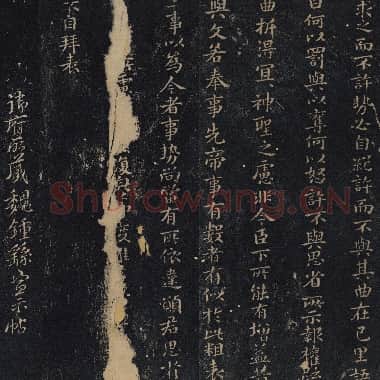 求之而不許勢必自絕許而不與其曲在己里語
曰何以罰與以奪何以怒許不與思省所示報權疏
曲折得宜神聖之慮非今臣下所能有增益
與文若奉事先帝事有數者有似於此粗表
事以為今者事勢尚當有所依違願君思省
復
不自拜表
府所藏魏鍾繇宣示帖
Shufawang.CN